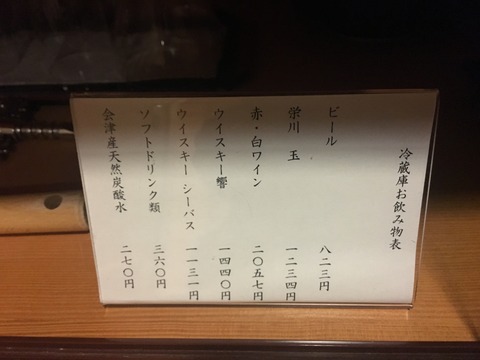 冷蔵庫お飲み物表
ビール 八二三円
栄川 玉 一二三四円
赤・白ワイン 二〇五七円
ウイスキー響 一四四〇円
ウイスキー シーバス 一一三一円
ソフトドリンク類 三六〇円
会津産天然炭酸水 二七〇円